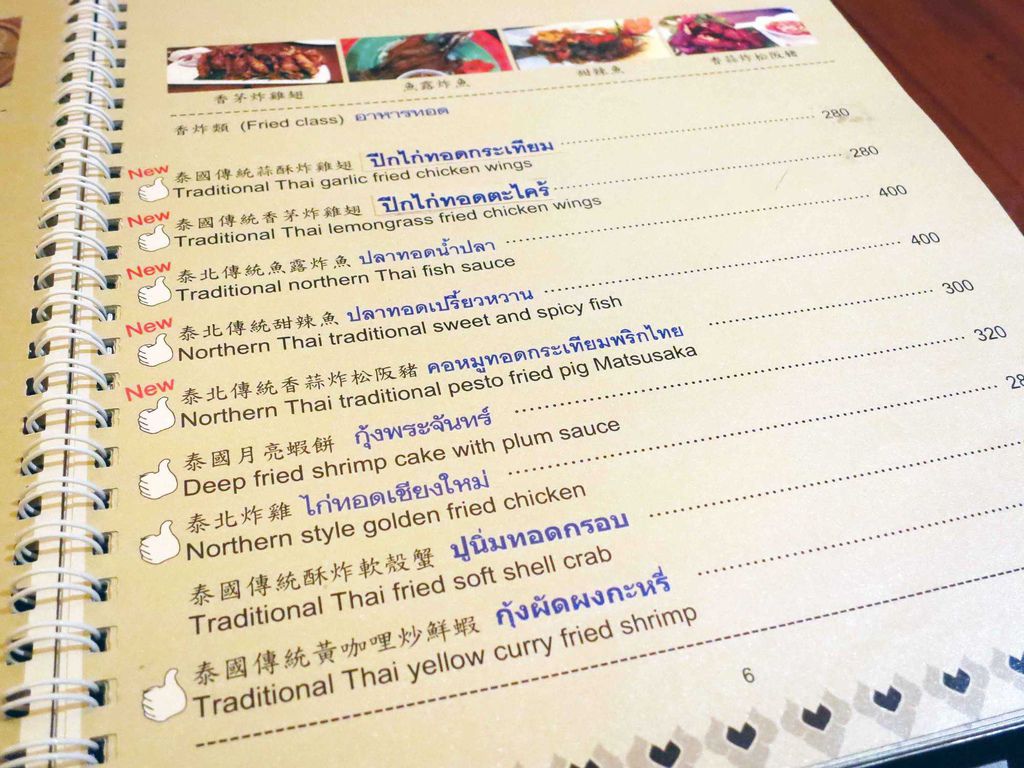 香茅炸雞翅
魚露炸魚
甜辣魚
香蒜炸松阪豬
香炸類 (Fried class) อาหารทอด
New 泰國傳統蒜酥炸雞翅 ปีกไก่ทอดกระเทียม 280
Traditional Thai garlic fried chicken wings
New 泰國傳統香茅炸雞翅 ปีกไก่ทอดตะไคร้ 280
Traditional Thai lemongrass fried chicken wings
New 泰北傳統魚露炸魚 ปลาทอดน้ำปลา 400
Traditional northern Thai fish sauce
New 泰北傳統甜辣魚 ปลาทอดเปรี้ยวหวาน 400
Northern Thai traditional sweet and spicy fish
New 泰北傳統香蒜炸松阪豬 คอหมูทอดกระเทียมพริกไทย 300
Northern Thai traditional pesto fried pig Matsusaka
泰國月亮蝦餅 กุ้งพระจันทร์ 320
Deep fried shrimp cake with plum sauce
泰北炸雞 ไก่ทอดเชียงใหม่
Northern style golden fried chicken
泰國傳統酥炸軟殼蟹 ปูนิ่มทอดกรอบ
Traditional Thai fried soft shell crab
泰國傳統黃咖哩炒鮮蝦 กุ้งผัดผงกะหรี่
Traditional Thai yellow curry fried shrimp
6